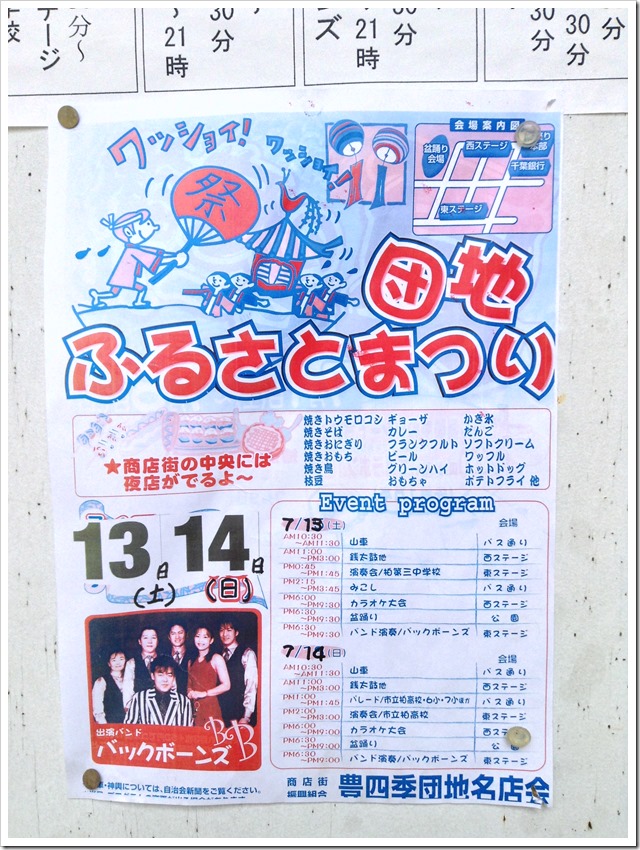 分〜
テージ
校
30分
〜21時
ズ
〜21時
30分
30分
30分
ワッショイ!
ワッショイ!
祭
会場案内図
盆踊り会場
西ステージ
本部
千葉銀行
東ステージ
団地
ふるさとまつり
★商店街の中央には
夜店がでるよ〜
焼きトウモロコシ ギョーザ かき氷
焼きそば カレー だんご
焼きおにぎり フランクフルト ソフトクリーム
焼きおもち ビール ワッフル
焼き鳥 グリーンハイ ホットドッグ
枝豆 おもちゃ ポテトフライ 他
Event program
13日(土) 14日(日)
7/13(土) 会場
AM10:30〜AM11:30 山車 バス通り
AM11:00〜PM3:00 銭太鼓他 西ステージ
PM0:45〜PM1:45 演奏会/柏第三中学校 東ステージ
PM2:15〜PM3:45 みこし バス通り
PM6:00〜PM9:30 カラオケ大会 西ステージ
PM6:30〜PM9:30 盆踊り 公園
PM6:30〜PM9:30 バンド演奏/バックボーンズ 東ステージ
7/14(日) 会場
AM10:30〜AM11:30 山車 バス通り
AM11:00〜PM3:00 銭太鼓他 西ステージ
PM1:00〜PM1:45 パレード/市立柏高校・6小・7小ほか バス通り
PM2:00〜PM3:00 演奏会/市立柏高校 東ステージ
PM6:00〜PM9:00 カラオケ大会 西ステージ
PM6:30〜PM9:00 盆踊り 公園
PM6:30〜PM9:00 バンド演奏/バックボーンズ 東ステージ
出演バンド
バックボーンズ
BB
・神輿については、自治会新聞をご覧ください。
商店街
振興組合
豊四季団地名店会